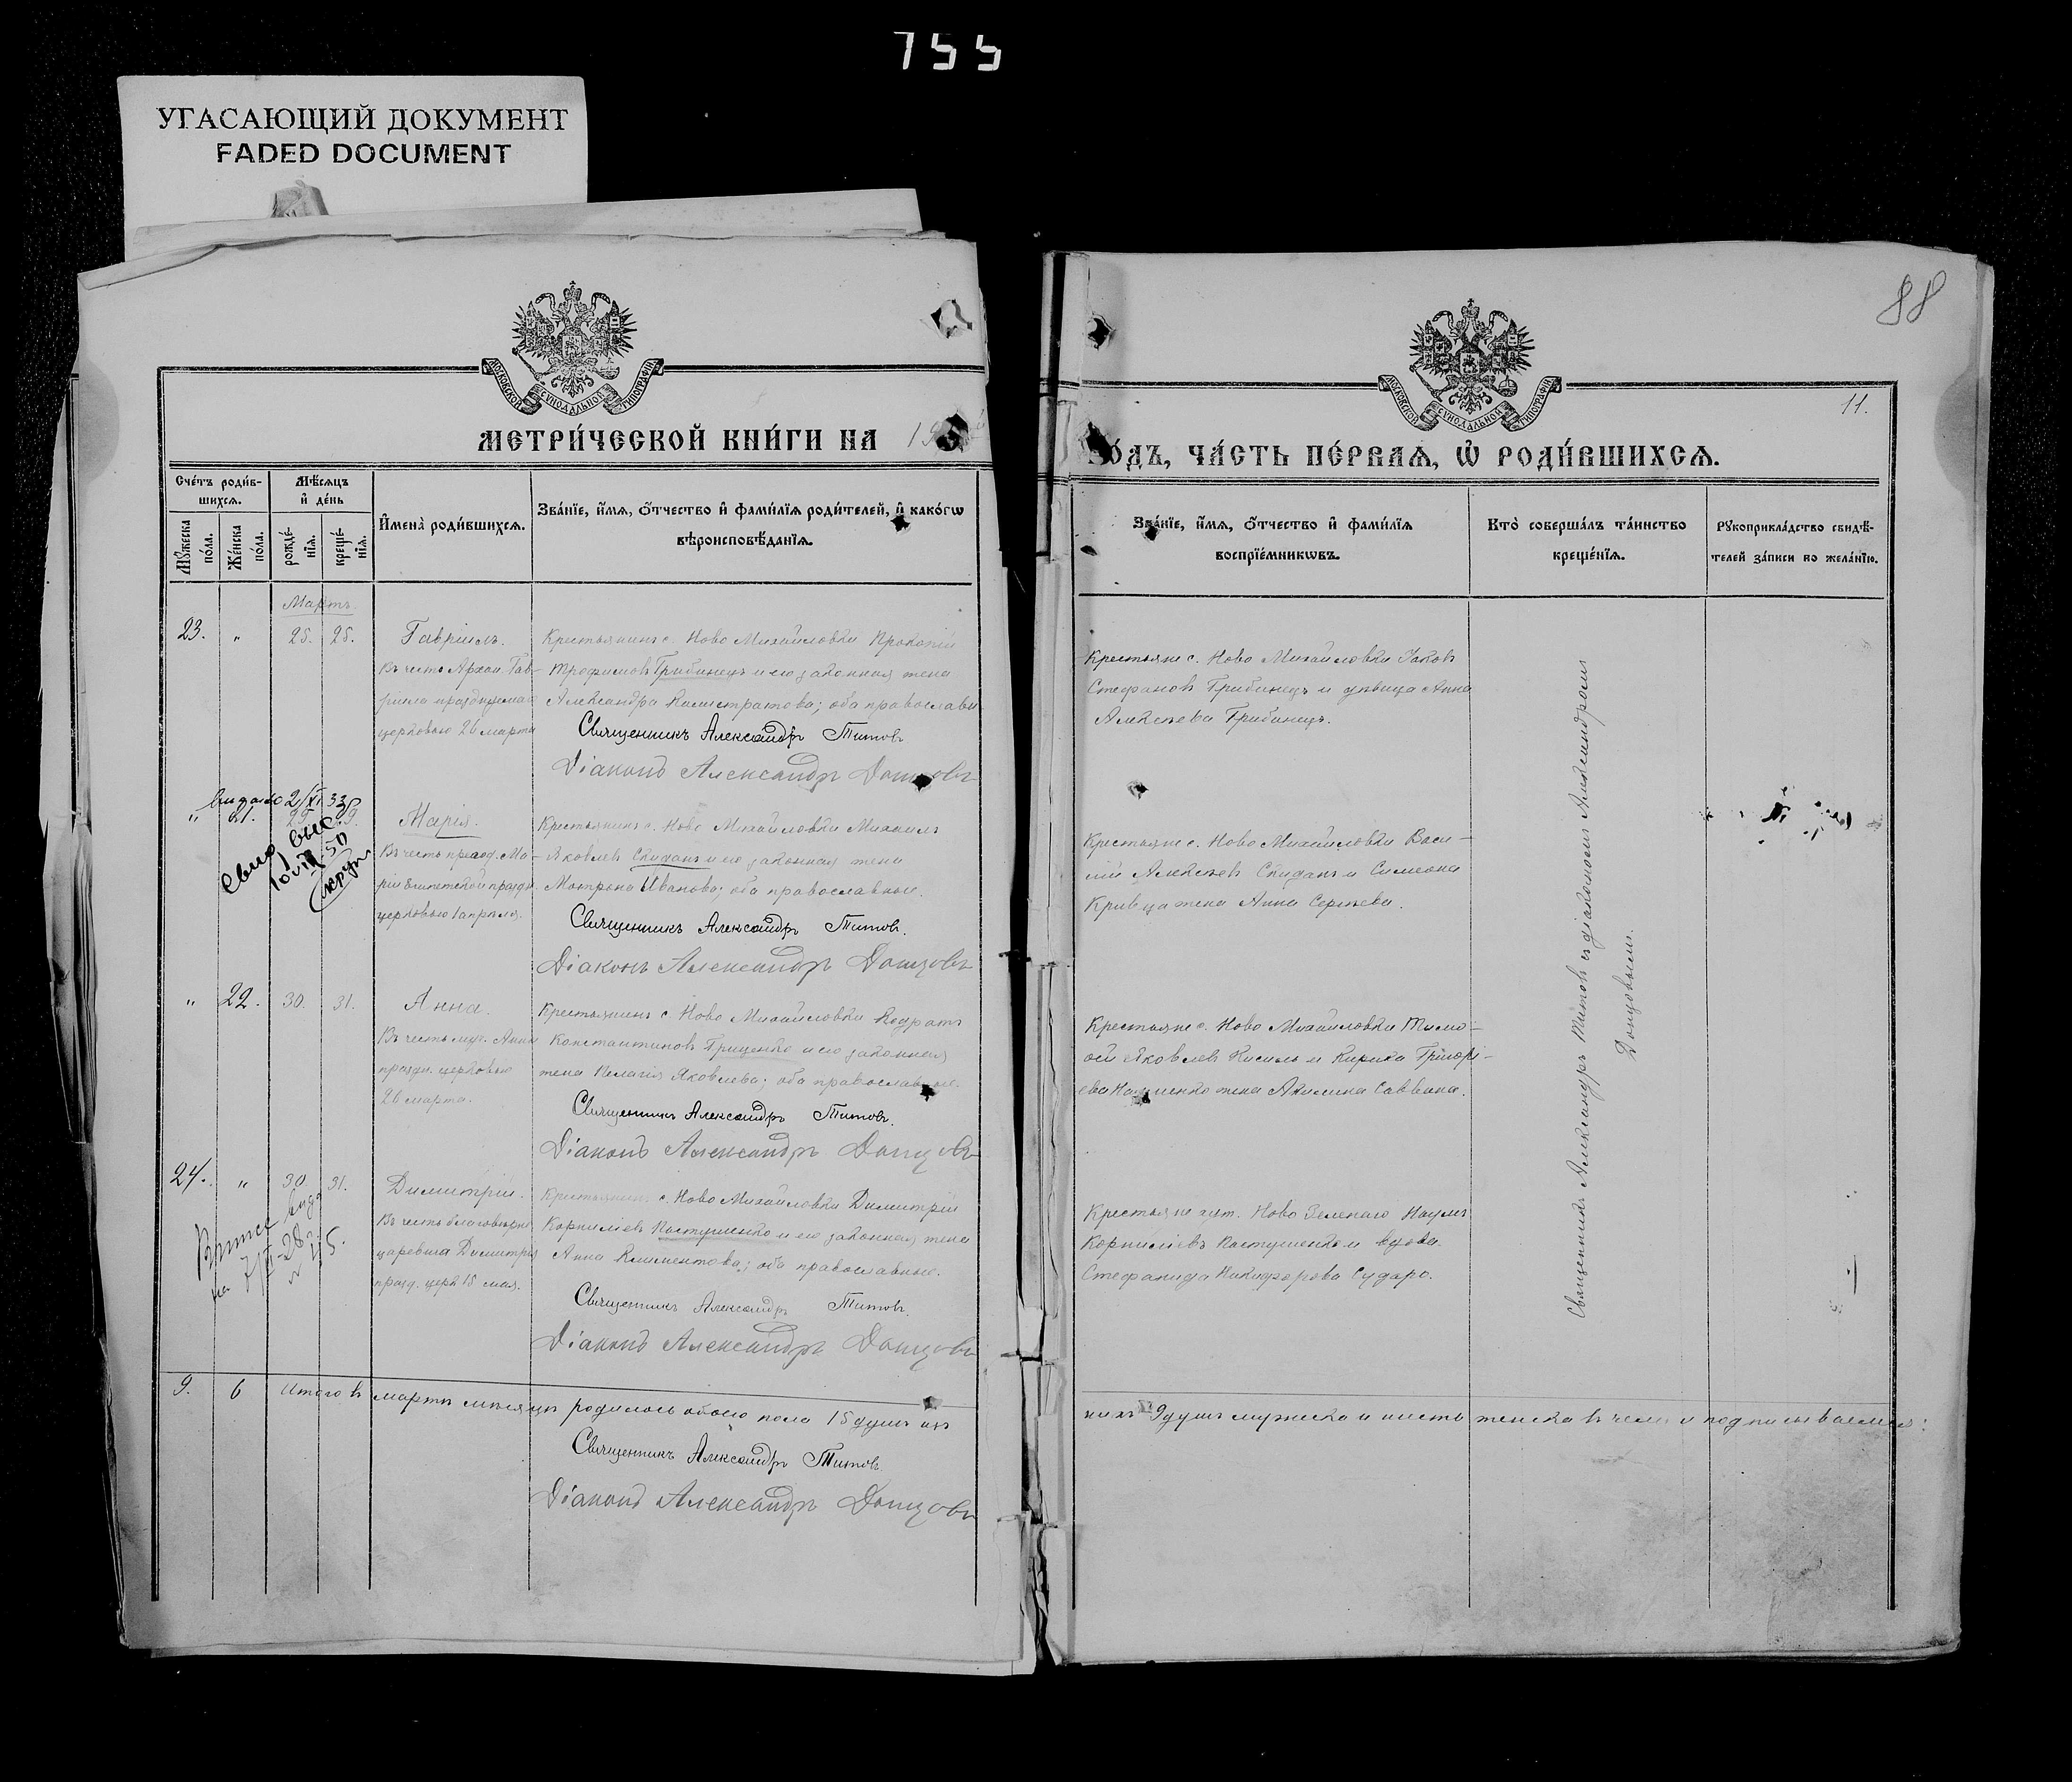 755
УГАСАЮЩИЙ ДОКУМЕНТ
FADED DOCUMENT
88
11.
МОСКОВСКОЙ СУНОДАЛЬНОЙ ТИПОГРАФІИ
МОСКОВСКОЙ СУНОДАЛЬНОЙ ТИПОГРАФІИ
МЕТРИ́ЧЕСКОЙ КНИ́ГИ НА 19
ГО́ДЪ, ЧА́СТЬ ПЕ́РВАѦ, Ѡ҆ РОДИ́ВШИХСѦ.
Сче́тъ роди́в-
шихсѧ.
Мꙋ́жеска по́ла.
Же́нска по́ла.
Мѣ́сѧцъ
и҆ де́нь
рожде́-
нїѧ.
креще́-
нїѧ.
И҆мена̀ роди́вшихсѧ.
Зва́нїе, и҆́мѧ, ѻ҆́тчество и҆ фами́лїѧ роди́телей, и҆ како́гѡ
вѣроисповѣ́данїѧ.
Зва́нїе, и҆́мѧ, ѻ҆́тчество и҆ фами́лїѧ
воспрїе́мникѡвъ.
Кто̀ соверша́лъ та́инство
креще́нїѧ.
Рꙋкоприкла́дство свидѣ́-
телей за́писи по жела́нїю.
Мартъ
23. " 25. 25. Гавріилъ.
Въ честь Архан. Гав-
ріила празднуемаго
церковью 26 марта
Крестьянинъ с. Ново Михайловки Прокопій
Трофимовъ Грибинецъ и его законная жена
Александра Калистратова; оба православн
Священникъ Александръ Титовъ
Діаконъ Александръ Донцовъ
Крестьяне с. Ново Михайловки Іаковъ
Стефановъ Грибинецъ и дѣвица Анна
Алексѣева Грибинецъ.
Священникъ Александръ Титовъ съ діакономъ Александромъ
Донцовымъ.
видано 2/XI 33
" 21. 29. Марія.
Въ честь препод. Ма-
ріи Египетской праздн.
церковью 1 апрѣля.
Крестьянинъ с. Ново Михайловки Михаилъ
Яковлевъ Скиданъ и его законная жена
Матрона Иванова; оба православные.
Священникъ Александръ Титовъ.
Діаконъ Александръ Донцовъ
Крестьяне с. Ново Михайловки Васи-
лій Алексѣевъ Скиданъ и Симеона
Кривца жена Анна Сергѣева.
" 22. 30. 31. Анна.
Въ честь муч. Анны
праздн. церковью
26 марта.
Крестьянинъ с. Ново Михайловки Кодратъ
Константиновъ Гриценко и его законная
жена Пелагія Яковлева; оба православные.
Священникъ Александръ Титовъ.
Діаконъ Александръ Донцовъ
Крестьяне с. Ново Михайловки Тимо-
фей Яковлевъ Кисиль и Кирика Григорі-
ева жена Акилина Саввина.
24. " 30. 31. Димитрій.
Въ честь благовѣрн.
царевича Димитрія
празд. церк. 15 мая.
Крестьянинъ с. Ново Михайловки Димитрій
Корниліевъ Пастушенко и его законная жена
Анна Климентова; оба православные.
Священникъ Александръ Титовъ.
Діаконъ Александръ Донцовъ
Крестьяне хут. Ново Зеленаго Наумъ
Корниліевъ Пастушенко и вдова
Стефанида Никифорова Сударо.
9. 6 Итого въ мартѣ мѣсяцѣ родилось обоего пола 15 душъ изъ
нихъ 9 душъ мужеска и шесть женска въ чемъ и подписываемся:
Священникъ Александръ Титовъ
Діаконъ Александръ Донцовъ